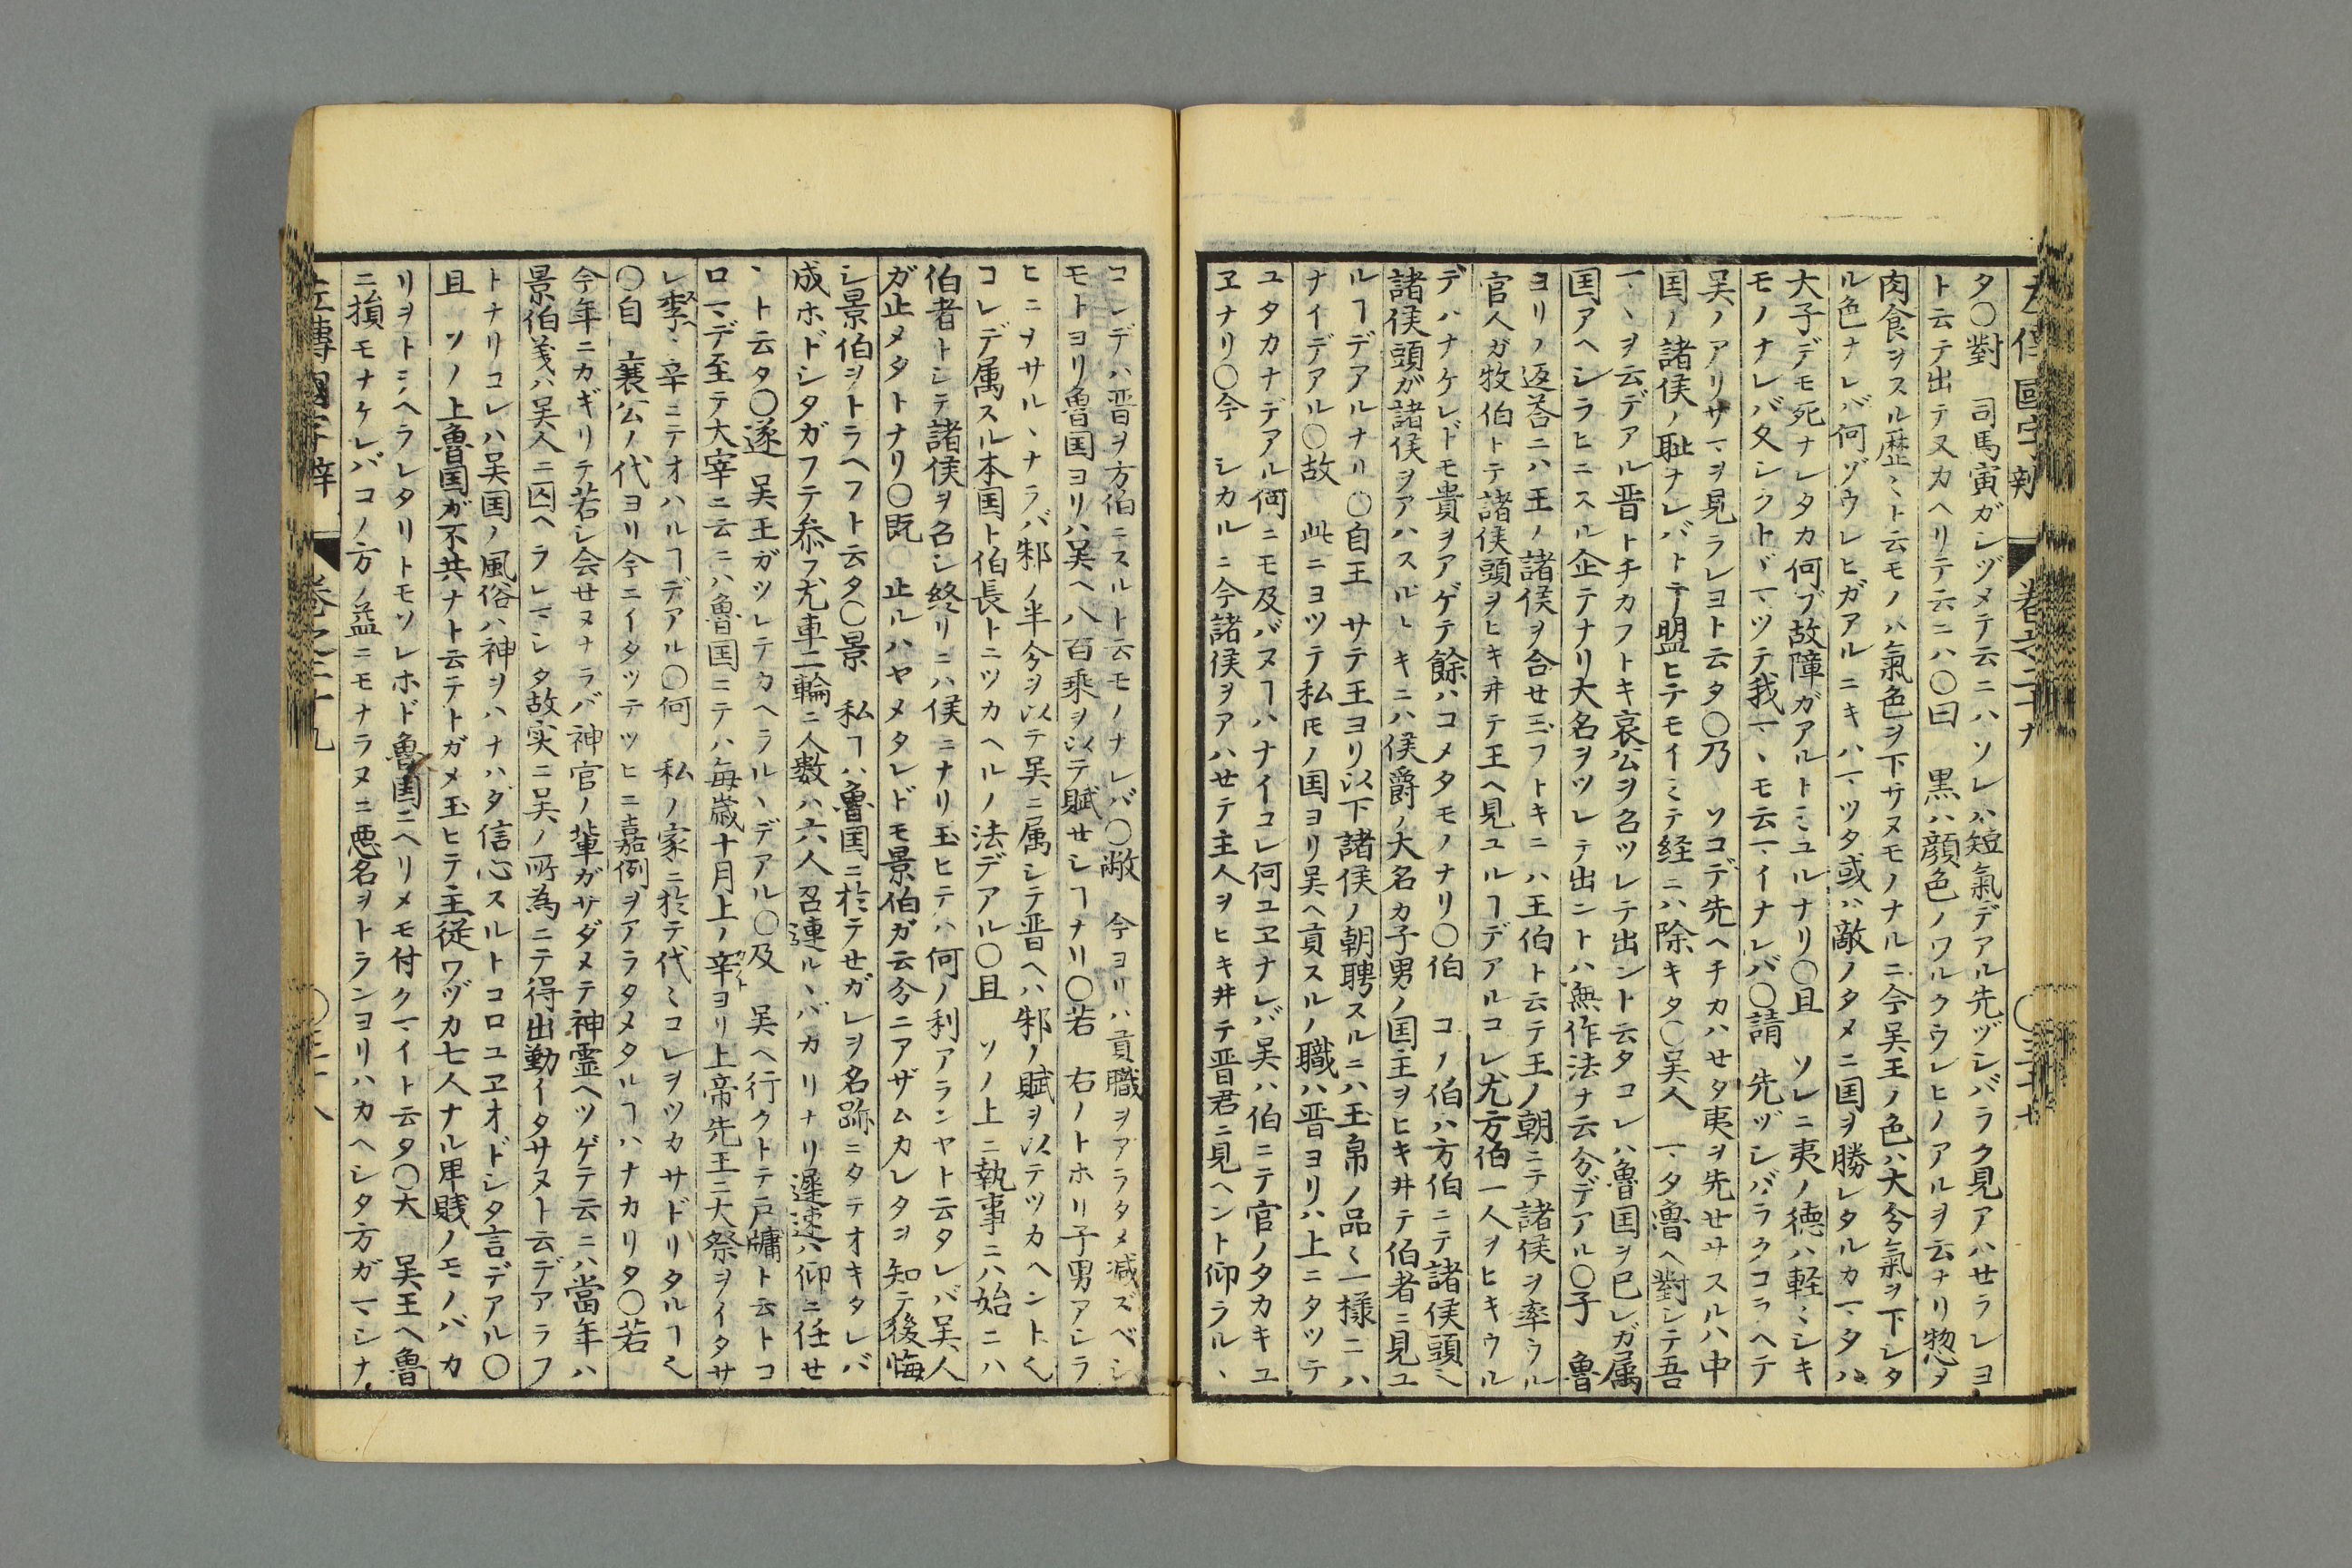 タ〇對 司馬寅ガシヅメテ云ニハソレハ短氣デアル先ヅシバラク見アハセラレヨ
ト云テ出テ又カヘリテ云ニハ〇曰 黒ハ顔色ノワルクウレヒノアルヲ云ナリ惣タ
肉食ヲスル歴〻ト云モノハ氣色ヲ下サヌモノナルニ今吴王ノ色ハ大分氣ヲ下シタ
ル色ナレバ何ゾウレヒガアルニキハマツタ或ハ敵ノタメニ国ヲ勝レタルカマタハ
大子デモ死ナレタカ何ゾ故障ガアルトミユルナリ〇且 ソレニ夷ノ徳ハ軽〻シキ
モノナレバ久シクトヾマツテ我マヽモ云マイナレバ〇請 先ヅシバラクコラヘテ
吴ノアリサマヲ見ラレヨト云タ〇乃 ソコデ先ヘチカハセタ夷ヲ先セヰスルハ中
国ノ諸侯ノ耻ナレバトテ盟ヒテモイミテ経ニハ除キタ〇吴人 マタ魯ヘ對シテ吾
マヽヲ云デアル晋トチカフトキ哀公ヲ召ツレテ出ント云タコレハ魯国ヲ已レガ属
国アヘシラヒニスル企テナリ大名ヲツレテ出ントハ無作法ナ云分デアル〇子 魯
ヨリノ返荅ニハ王ノ諸侯ヲ合セ玉フトキニハ王伯ト云テ王ノ朝ニテ諸侯ヲ率ウル
官人ガ牧伯トテ諸侯頭ヲヒキ井テ王ヘ見ユルヿデアルコレ尤方伯一人ヲヒキウル
デハナケレドモ貴ヲアゲテ餘ハコメタモノナリ〇伯 コノ伯ハ方伯ニテ諸侯頭ヘ
諸侯頭ガ諸侯ヲアハスルトキニハ侯爵ノ大名カ子男ノ国主ヲヒキ井テ伯者ニ見ユ
ルヿデアルナリ〇自王 サテ王ヨリ以下諸侯ノ朝聘スルニハ玉帛ノ品〻一様ニハ
ナイデアル〇故 此ニヨツテ私圧ノ国ヨリ吴ヘ貢スルノ職ハ晋ヨリハ上ニタツテ
ユタカナデアル何ニモ及バヌヿハナイコレ何ユヱナレバ吴ハ伯ニテ官ノタカキユ
ヱナリ〇今 シカルニ今諸侯ヲアハセテ主人ヲヒキ井テ晋君ニ見ヘント仰ラルヽ
コレデハ晋ヲ方伯ニスルト云モノナレバ〇敝 今ヨリハ貢職ヲアラタメ減ズベシ
モトヨリ魯国ヨリハ吴ヘ八百乗ヲ以テ賦セシヿナリ〇若 右ノトホリ子男アシラ
ヒニヲサルヽナラバ邾ノ半分ヲ以テ吴ニ属シテ晋ヘハ邾ノ賦ヲ以テツカヘント也
コレデ属スル本国ト伯長トニツカヘルノ法デアル〇且 ソノ上ニ執事ニハ始ニハ
伯者トシテ諸侯ヲ召シ終リニハ侯ニナリ玉ヒテハ何ノ利アランヤト云タレバ吴人
ガ止メタトナリ〇既 止ルハヤメタレドモ景伯ガ云分ニアザムカレタヲ知テ後悔
シ景伯ヲトラヘフト云タ〇景 私ヿハ魯国ニ於テセガレヲ名跡ニタテオキタレバ
成ホドシタガフテ参フ尤車二輪ニ人数ハ六人召連ルヽバカリナリ遅速ハ仰ニ任セ
ヽト云タ〇遂 吴王ガツレテカヘラルヽデアル〇及 吴ヘ行クトテ戸牖ト云トコ
ロマデ至テ大宰ニ云ニハ魯国ニテハ毎歳十月上ノ辛ヨリ上帝先王ニ大祭ヲイタサ
レ季ノ辛ニテオハルヿデアル〇何 私ノ家ニ於テ代〻コレヲツカサドリタルヿ也
〇自 襄公ノ代ヨリ今ニイタツテツヒニ嘉例ヲアラタメタルヿハナカリタ〇若
今年ニカギリテ若シ会セヌナラバ神官ノ輩ガサダメテ神霊ヘツゲテ云ニハ當年ハ
景伯義ハ吴人ニ囚ヘラレマシタ故実ニ吴ノ所為ニテ得出勤イタサヌト云デアラフ
トナリコレハ吴国ノ風俗ハ神ヲハナハダ信心スルトコロユヱオドシタ言デアル〇
且 ソノ上魯国ガ不共ナト云テトガメ玉ヒテ主従ワヅカ七人ナル卑賤ノモノバカ
リヲトラヘラレタリトモソレホド魯国ニヘリメモ付クマイト云タ〇大 吴王ヘ魯
ニ損モナケレバコノ方ノ益ニモナラヌニ悪名ヲトランヨリハカヘシタ方ガマシナ